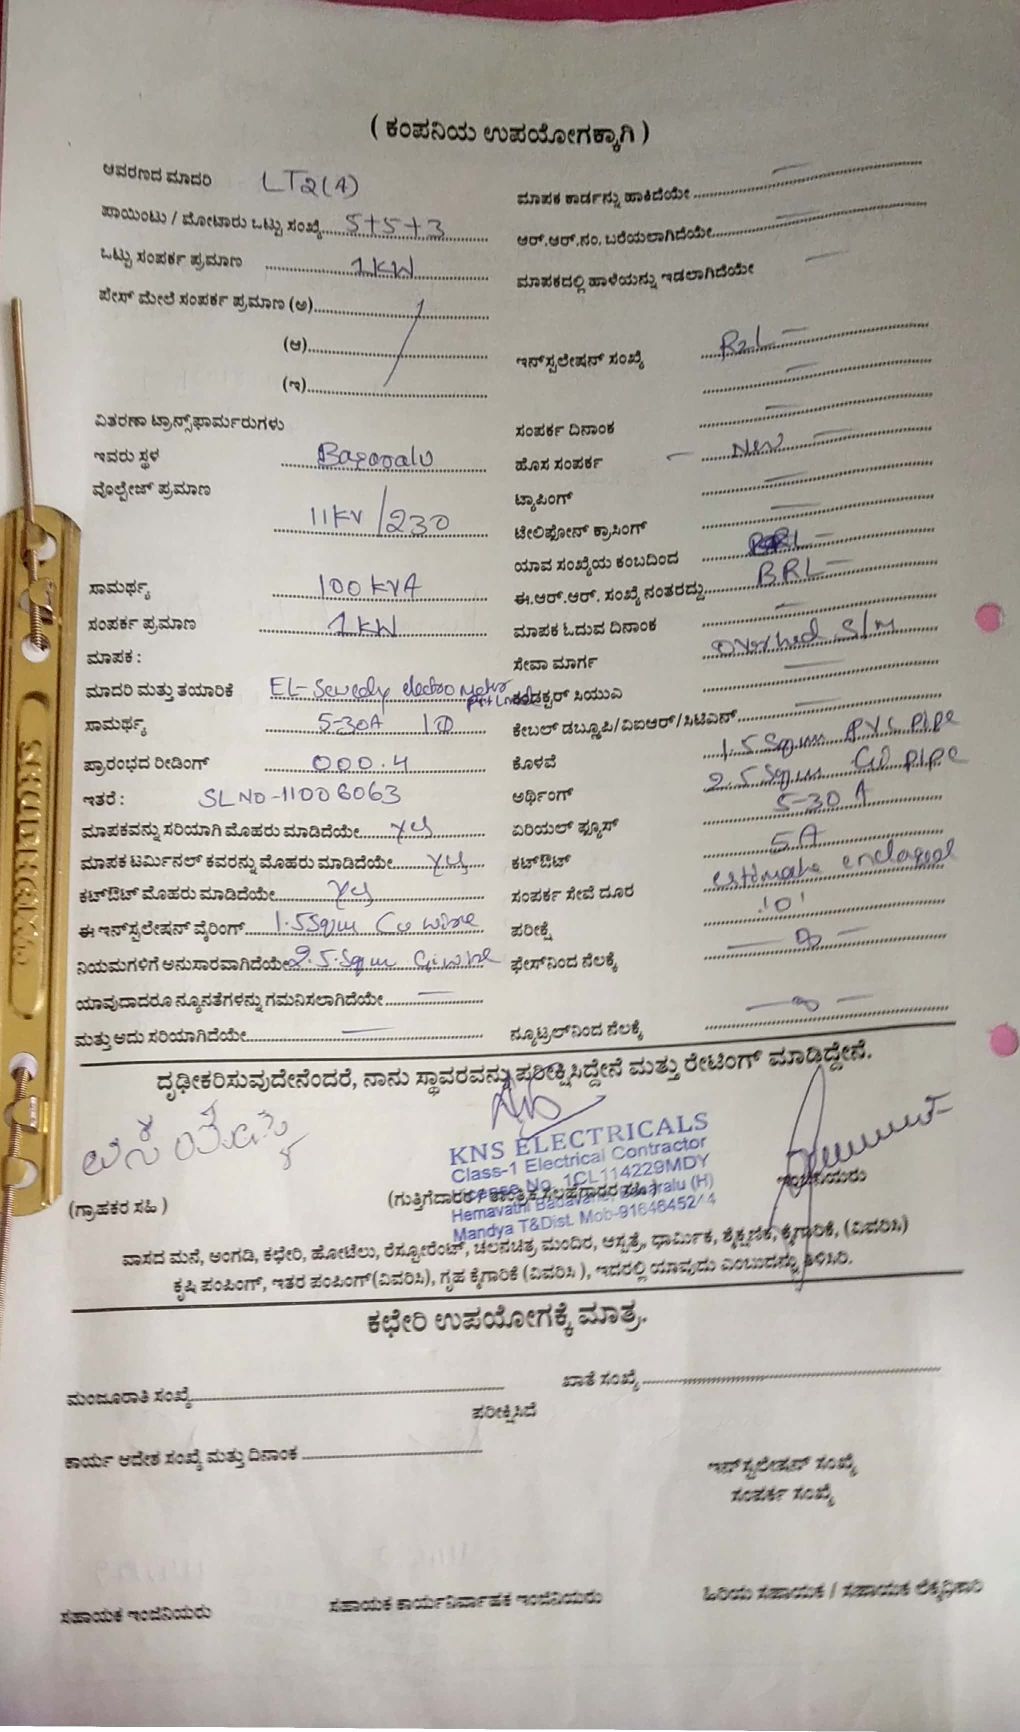 ( ಕಂಪನಿಯ ಉಪಯೋಗಕ್ಕಾಗಿ )
ಆವರಣದ ಮಾದರಿ LT2(4)
ಪಾಯಿಂಟು / ಮೋಟಾರು ಒಟ್ಟು ಸಂಖ್ಯೆ 5+5+3
ಒಟ್ಟು ಸಂಪರ್ಕ ಪ್ರಮಾಣ 1KW
ಪೇಸ್ ಮೇಲೆ ಸಂಪರ್ಕ ಪ್ರಮಾಣ (ಅ)
(ಆ)
(ಇ)
ವಿತರಣಾ ಟ್ರಾನ್ಸ್‌ಫಾರ್ಮರುಗಳು
ಇವರು ಸ್ಥಳ
ವೊಲ್ಟೇಜ್ ಪ್ರಮಾಣ
11KV/230
ಸಾಮರ್ಥ್ಯ 100 KVA
ಸಂಪರ್ಕ ಪ್ರಮಾಣ 1KW
ಮಾಪಕ :
ಮಾದರಿ ಮತ್ತು ತಯಾರಿಕೆ EL-Sewedy electro Meter
ಸಾಮರ್ಥ್ಯ 5-30A 1Ø
ಪ್ರಾರಂಭದ ರೀಡಿಂಗ್ 000.4
ಇತರೆ : SL NO-11006063
ಮಾಪಕವನ್ನು ಸರಿಯಾಗಿ ಮೊಹರು ಮಾಡಿದೆಯೇ yes
ಮಾಪಕ ಟರ್ಮಿನಲ್ ಕವರನ್ನು ಮೊಹರು ಮಾಡಿದೆಯೇ yes
ಕಟ್‌ಔಟ್ ಮೊಹರು ಮಾಡಿದೆಯೇ yes
ಈ ಇನ್‌ಸ್ಟಲೇಷನ್ ವೈರಿಂಗ್ 1.5Sqm Cu wire
ನಿಯಮಗಳಿಗೆ ಅನುಸಾರವಾಗಿದೆಯೇ 2.5.Sqm G.I wire
ಯಾವುದಾದರೂ ನ್ಯೂನತೆಗಳನ್ನು ಗಮನಿಸಲಾಗಿದೆಯೇ
ಮತ್ತು ಅದು ಸರಿಯಾಗಿದೆಯೇ
ಮಾಪಕ ಕಾರ್ಡನ್ನು ಹಾಕಿದೆಯೇ
ಆರ್.ಆರ್.ನಂ. ಬರೆಯಲಾಗಿದೆಯೇ
ಮಾಪಕದಲ್ಲಿ ಹಾಳೆಯನ್ನು ಇಡಲಾಗಿದೆಯೇ
ಇನ್‌ಸ್ಟಲೇಷನ್ ಸಂಖ್ಯೆ
ಸಂಪರ್ಕ ದಿನಾಂಕ
ಹೊಸ ಸಂಪರ್ಕ – New –
ಟ್ಯಾಪಿಂಗ್
ಟೇಲಿಫೋನ್ ಕ್ರಾಸಿಂಗ್
ಯಾವ ಸಂಖ್ಯೆಯ ಕಂಬದಿಂದ
ಈ.ಆರ್.ಆರ್. ಸಂಖ್ಯೆ ನಂತರದ್ದು BRL –
ಮಾಪಕ ಓದುವ ದಿನಾಂಕ
ಸೇವಾ ಮಾರ್ಗ Overhed S/M
ಕಂಡಕ್ಟರ್ ಸಿಯುವಿ
ಕೇಬಲ್ ಡಬ್ಲ್ಯೂಪಿ/ವಿಐಆರ್/ಸಿಟಿಎನ್
ಕೊಳವೆ 1.5 Sqmm PVC pipe
ಅರ್ಥಿಂಗ್ 2.5 Sqmm GI pipe
ಏರಿಯಲ್ ಫ್ಯೂಸ್ 5-30 A
ಕಟ್‌ಔಟ್ 5A
ಸಂಪರ್ಕ ಸೇವೆ ದೂರ estimate enclosed
ಪರೀಕ್ಷೆ '0'
ಫೇಸ್‌ನಿಂದ ನೆಲಕ್ಕೆ
ನ್ಯೂಟ್ರಲ್‌ನಿಂದ ನೆಲಕ್ಕೆ
ದೃಢೀಕರಿಸುವುದೇನೆಂದರೆ, ನಾನು ಸ್ಥಾವರವನ್ನು ಪರೀಕ್ಷಿಸಿದ್ದೇನೆ ಮತ್ತು ರೇಟಿಂಗ್ ಮಾಡಿದ್ದೇನೆ.
KNS ELECTRICALS
Class-1 Electrical Contractor
License No. 1CL114229MDY
Hemavathi Badavane
Mandya T&Dist. Mob-91646452
(ಗ್ರಾಹಕರ ಸಹಿ ) (ಗುತ್ತಿಗೆದಾರರ / ತಾಂತ್ರಿಕ ಸಲಹೆಗಾರರ ಸಹಿ ) ಇಂಜಿನಿಯರು
ವಾಸದ ಮನೆ, ಅಂಗಡಿ, ಕಛೇರಿ, ಹೋಟೆಲು, ರೆಸ್ಟೋರೆಂಟ್, ಚಲನಚಿತ್ರ ಮಂದಿರ, ಆಸ್ಪತ್ರೆ, ಧಾರ್ಮಿಕ, ಶೈಕ್ಷಣಿಕ, ಕೈಗಾರಿಕೆ, (ವಿವರಿಸಿ)
ಕೃಷಿ ಪಂಪಿಂಗ್, ಇತರ ಪಂಪಿಂಗ್(ವಿವರಿಸಿ), ಗೃಹ ಕೈಗಾರಿಕೆ (ವಿವರಿಸಿ ), ಇದರಲ್ಲಿ ಯಾವುದು ಎಂಬುದನ್ನು ತಿಳಿಸಿರಿ.
ಕಛೇರಿ ಉಪಯೋಗಕ್ಕೆ ಮಾತ್ರ.
ಮಂಜೂರಾತಿ ಸಂಖ್ಯೆ ಖಾತೆ ಸಂಖ್ಯೆ
ಪರೀಕ್ಷಿಸಿದೆ
ಕಾರ್ಯ ಆದೇಶ ಸಂಖ್ಯೆ ಮತ್ತು ದಿನಾಂಕ
ಇನ್‌ಸ್ಟಲೇಷನ್ ಸಂಖ್ಯೆ
ಸಂಪರ್ಕ ಸಂಖ್ಯೆ
ಸಹಾಯಕ ಇಂಜಿನಿಯರು ಸಹಾಯಕ ಕಾರ್ಯನಿರ್ವಾಹಕ ಇಂಜಿನಿಯರು ಹಿರಿಯ ಸಹಾಯಕ / ಸಹಾಯಕ ಲೆಕ್ಕಾಧಿಕಾರಿ